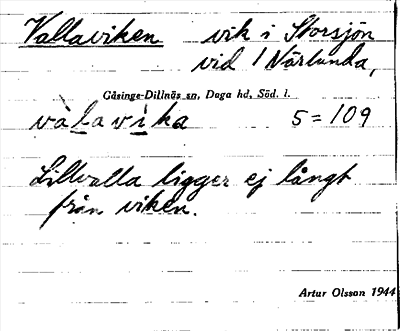 Vallaviken vik i Storsjön
vid / Närlunda,
Gåsinge-Dillnäs sn, Daga hd, Söd. l.
vàlavìka 5=109
Lillvalla ligger ej långt
från viken.
Artur Olsson 1944